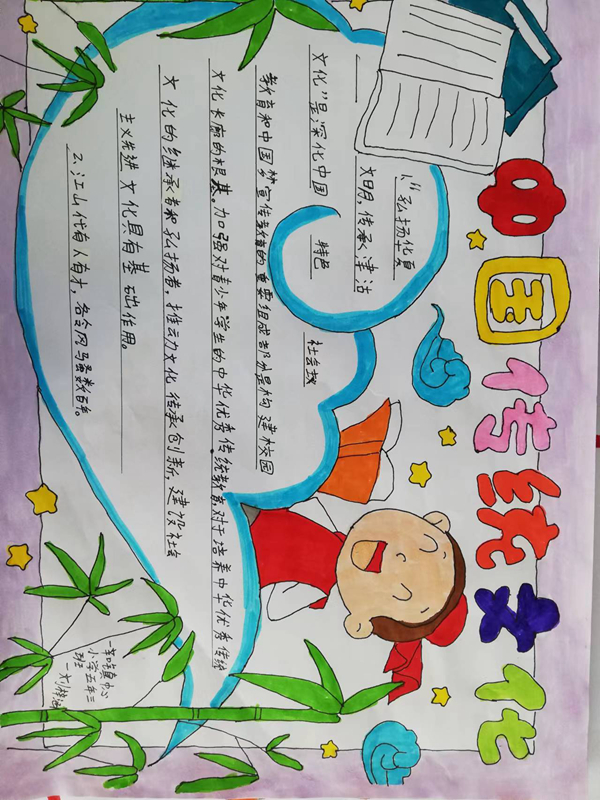 中国传统文化
1、“弘扬华夏
文明，传承津沽
文化”是深化中国 特色 社会
教育和中国梦宣传教育的重要组成部分是构建校园
文化长廊的根基。加强对青少年学生的中华优秀传统教育，对于培养中华优秀传统
文化的继承者和弘扬者，推动文化传承创新，建设社会
主义先进文化具有基础作用。
2、江山代有人有才，各令风骚数百年。
口镇中心
小学五年三
班
一刘梓